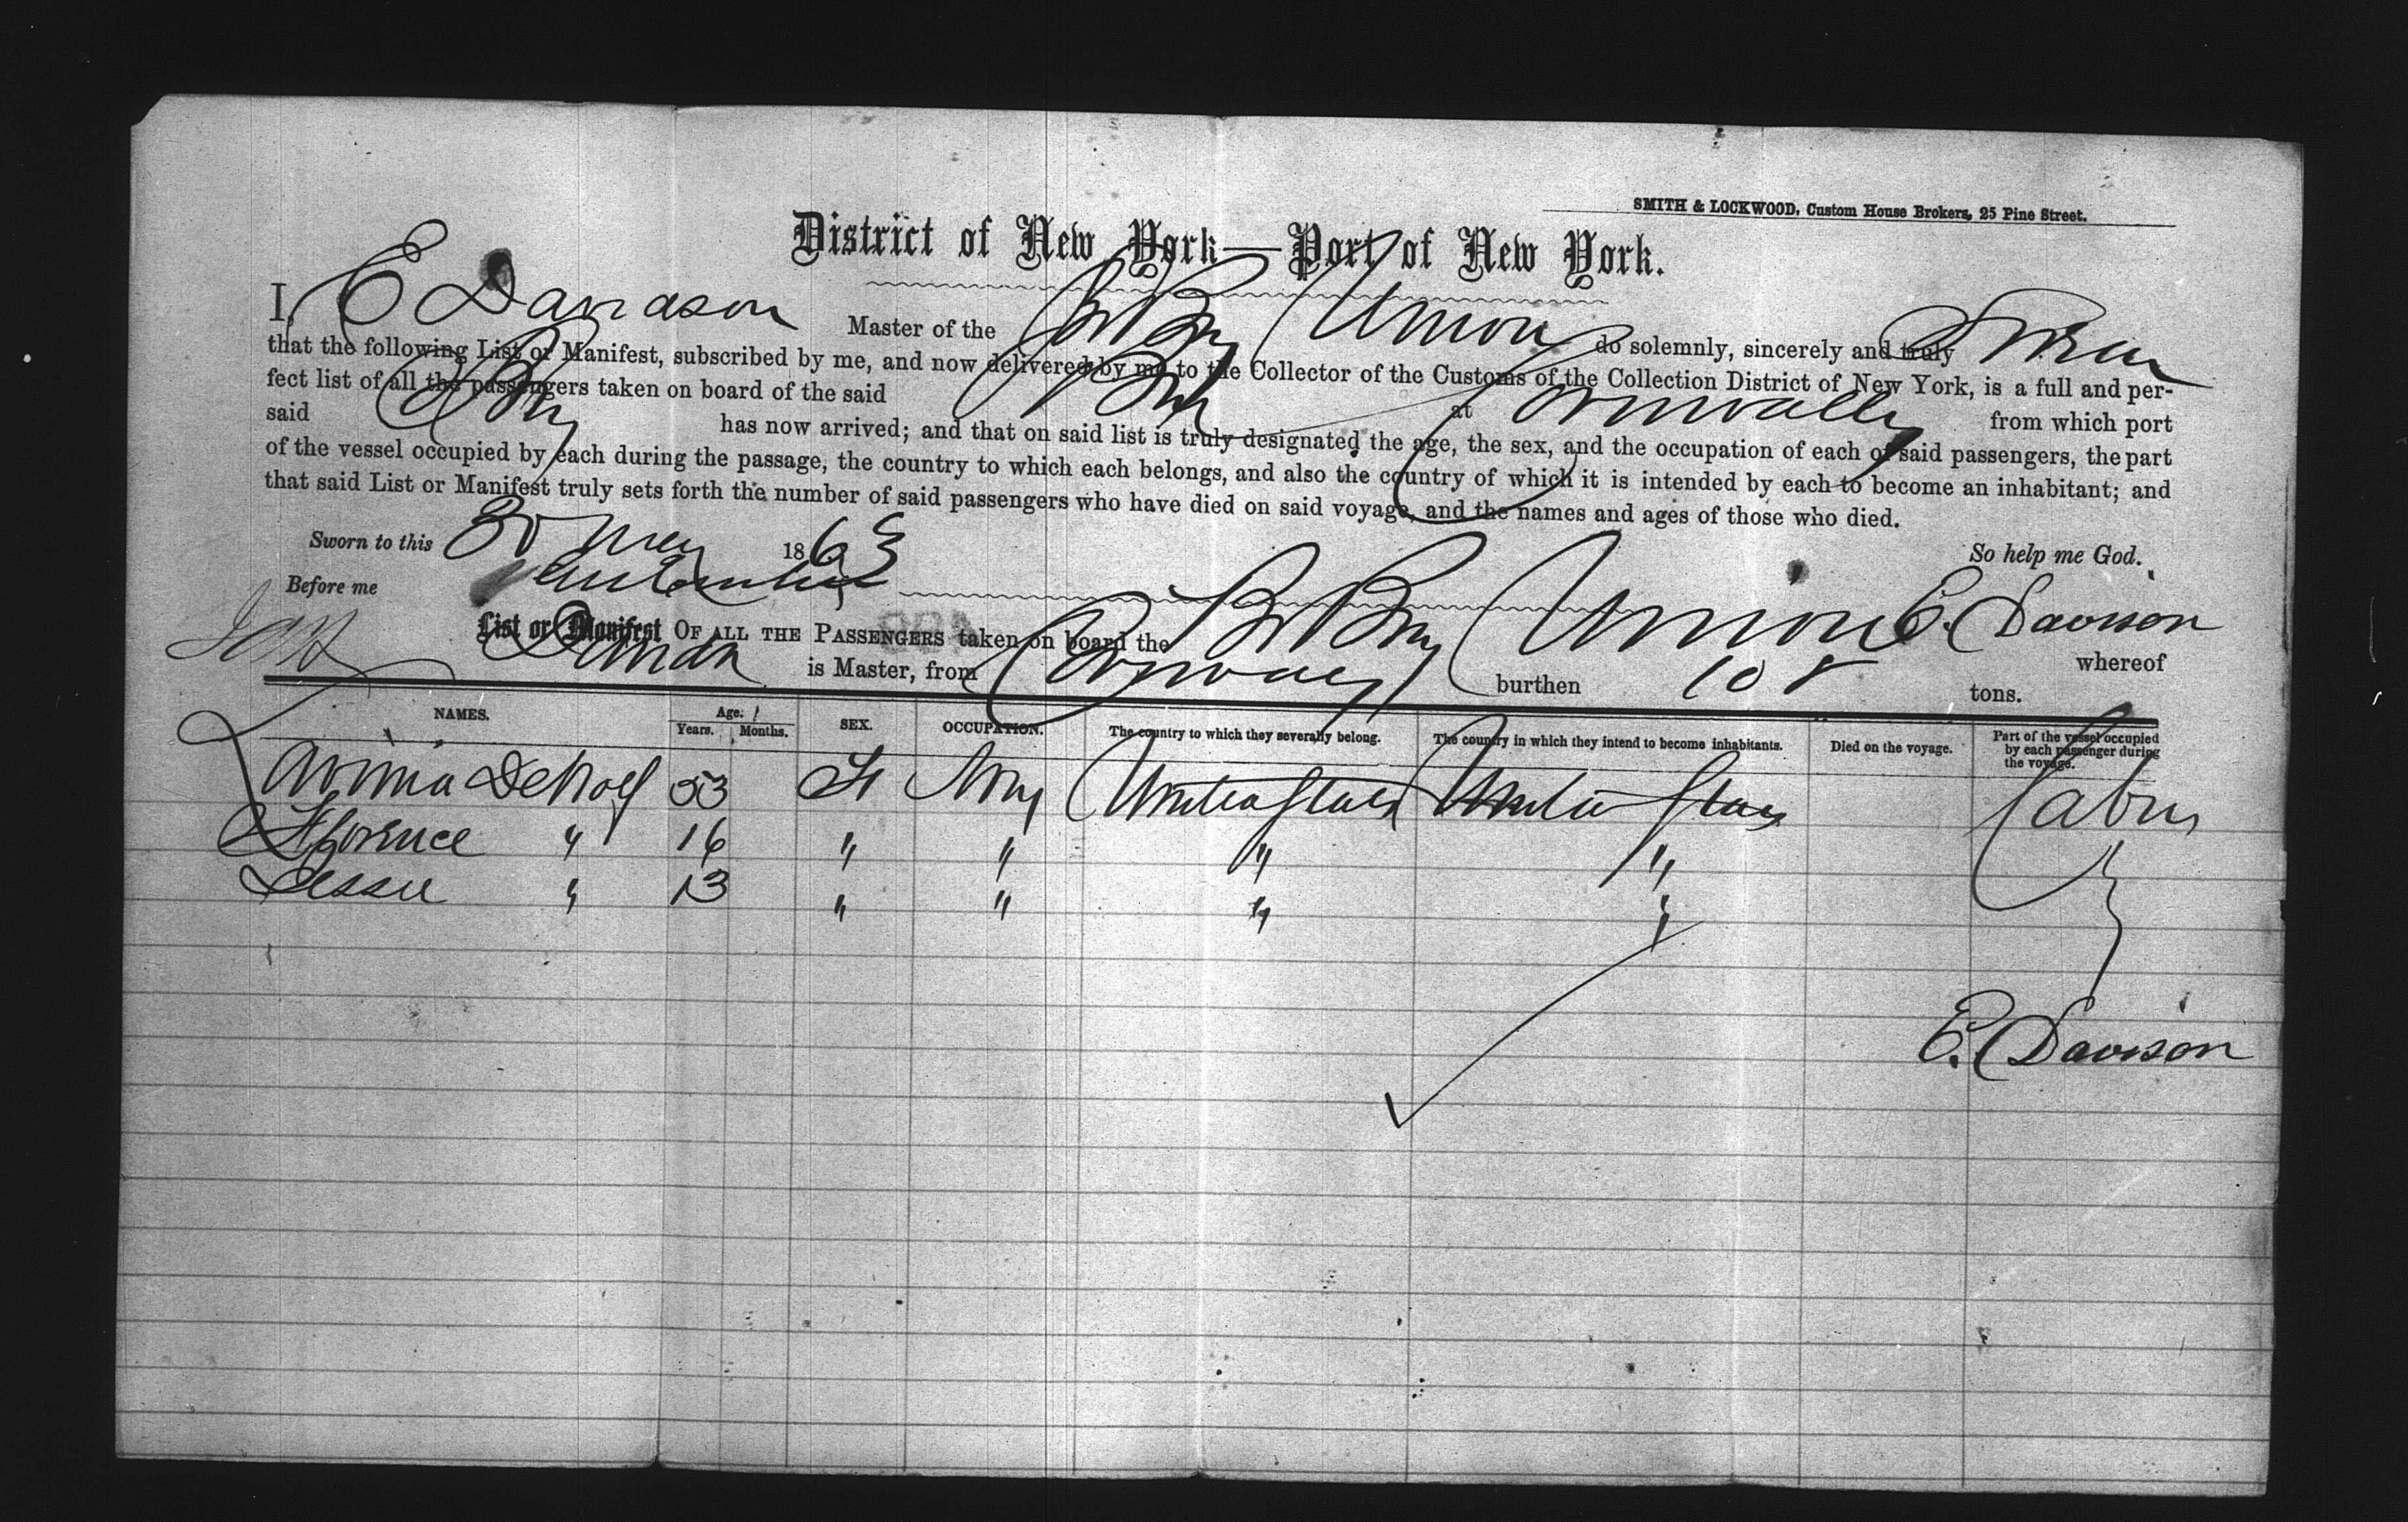 SMITH & LOCKWOOD, Custom House Brokers, 25 Pine Street.
District of New York—Port of New York.
I, E Davidson Master of the Br Brig Union do solemnly, sincerely and truly Swear
that the following List or Manifest, subscribed by me, and now delivered by me to the Collector of the Customs of the Collection District of New York, is a full and per-
fect list of all the passengers taken on board of the said Brig at Cornwallis from which port
said Brig has now arrived; and that on said list is truly designated the age, the sex, and the occupation of each of said passengers, the part
of the vessel occupied by each during the passage, the country to which each belongs, and also the country of which it is intended by each to become an inhabitant; and
that said List or Manifest truly sets forth the number of said passengers who have died on said voyage, and the names and ages of those who died.
Sworn to this 30 May 1863 So help me God.
Before me E. Davison
List or Manifest OF ALL THE PASSENGERS taken on board the Br Brig Union whereof
is Master, from burthen 108 tons.
NAMES. Age. Years. Months. SEX. OCCUPATION. The country to which they severally belong. The country in which they intend to become inhabitants. Died on the voyage. Part of the vessel occupied by each passenger during the voyage.
Lavinia DeWolf 53 F United States United States Cabin
Florence " 16 " " " "
Jessie " 13 " " " "
E. Davison